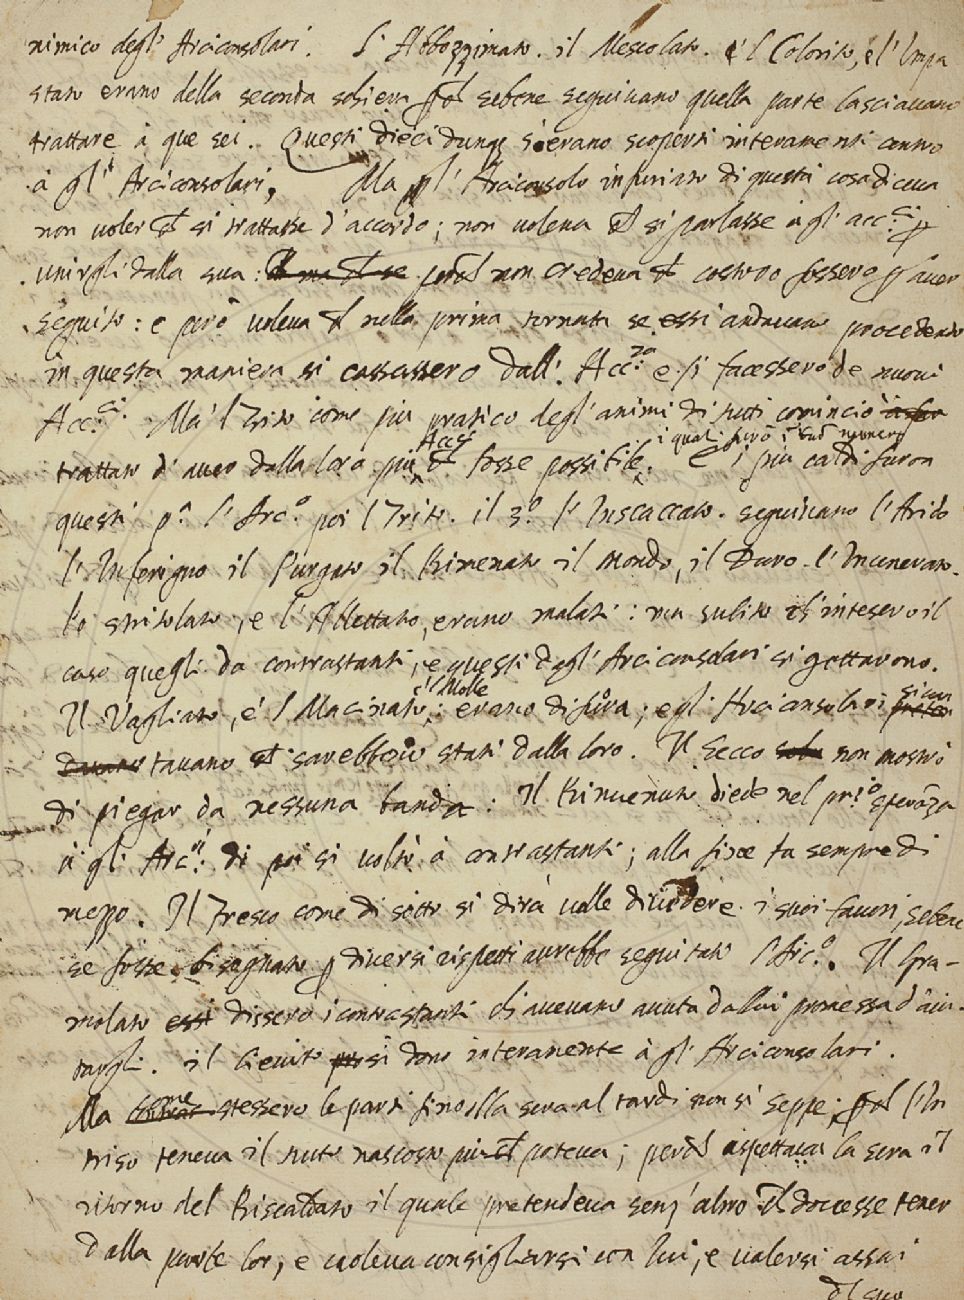 nimico degl' Arciconsolari. L'Abbozzimato. il Mescolato. e'l Colorito, e l'Impa
stato erano della seconda schiera sebene seguivano quella parte lasciavano
trattare à que sei. Questi dieci dunq s'erano scoperti interamente contro
à gl' Arciconsolari, Ma l'Arciconsolo infuriato di questa cosa diceva
non voler si trattasse d'accordo; non voleva si parlasse à gli acc.ci p
unirgli dalla sua: non credeva costoro fossero p haver
seguito: e però voleva nella prima tornata se essi andavano procedendo
in questa maniera si cassassero dall' Acc.a e si facessero de nuovi
Acc.ci. Ma l'Trito come più pratico degl'animi di tutti cominciò à
i quali furo i suo numero
trattare d'aver dalla loro più Acc.ci fosse possibile. e i più caldi furon
questi p.a l'Arc.o poi l'Trito. il 3.o l'Insaccato. seguivano l'Arido
l'Inferigno il Purgato il Rimenato il Mondo, il Duro. l'Incenerato.
lo stritolato, e l'Allettato, erano malati: ma subito ch'intesero il
caso quegli da contrastanti, e questi dagl' Arciconsolari si gettavono.
e'l Molle
Il Vagliato, e'l Macinato; erano di fuora; e gl' Arciconsolari si van
tavano si sarebbero stati dalla loro. Il Secco non mostrò
di piegar da nessuna banda: Il Rinvenuto diede nel pri.o speranza
à gli Arc.ni: di poi si voltò à contrastanti; alla fine fu sempre di
mezzo. Il Fresco come di sotto si dirà volle dividere i suoi favori, sebene
se fosse bisognato p diversi rispetti avrebbe seguitato l'Arc.o. Il Gra-
molato dissero i contrastanti ch'avevano avuta da lui promessa d'aiu-
targli. il Lievito si dono interamente à gl' Arciconsolari.
Ma come stessero le parti fino alla sera al tardi non si seppe; l'In
triso teneva il tutto nascosto più poteva; perch aspettava la sera il
ritorno del Riscaldato il quale pretendeva senz'altro dovesse tener
dalla parte lor, e voleva consigliarsi con lui, e valersi assai
del suo